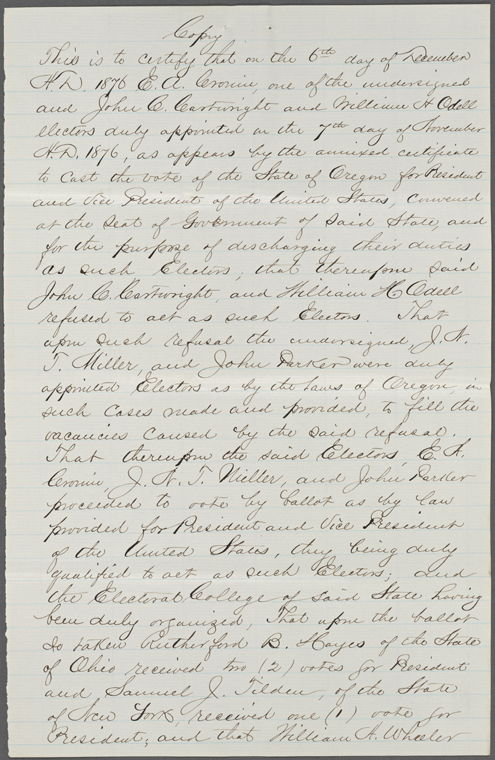 Copy
This is to certify that on the 6th day of December
A.D. 1876 E. A. Cronin, one of the undersigned
and John C. Cartwright and William H Odell
electors duly appointed on the 7th day of November
A.D. 1876, as appears by the annexed certificate
to cast the vote of the State of Oregon for President
and Vice President of the United States, convened
at the seat of Government of said State, and
for the purpose of discharging their duties
as such Electors, that thereupon said
John C. Cartwright, and William H Odell
refused to act as such Electors. That
upon such refusal the undersigned, J. N.
T. Miller, and John Parker were duly
appointed Electors as by the laws of Oregon, in
such cases made and provided, to fill the
vacancies caused by the said refusal.
That thereupon the said Electors, E. A.
Cronin J. N. T. Miller, and John Parker
proceeded to vote by ballot as by law
provided for President and Vice President
of the United States, they being duly
qualified to act as such Electors; and
the Electoral College of said State having
been duly organized, That upon the ballot
so taken Rutherford B. Hayes of the State
of Ohio received two (2) votes for President
and, Samuel J. Tilden, of the State
of New York, received one (1) vote for
President; and that William A. Wheeler